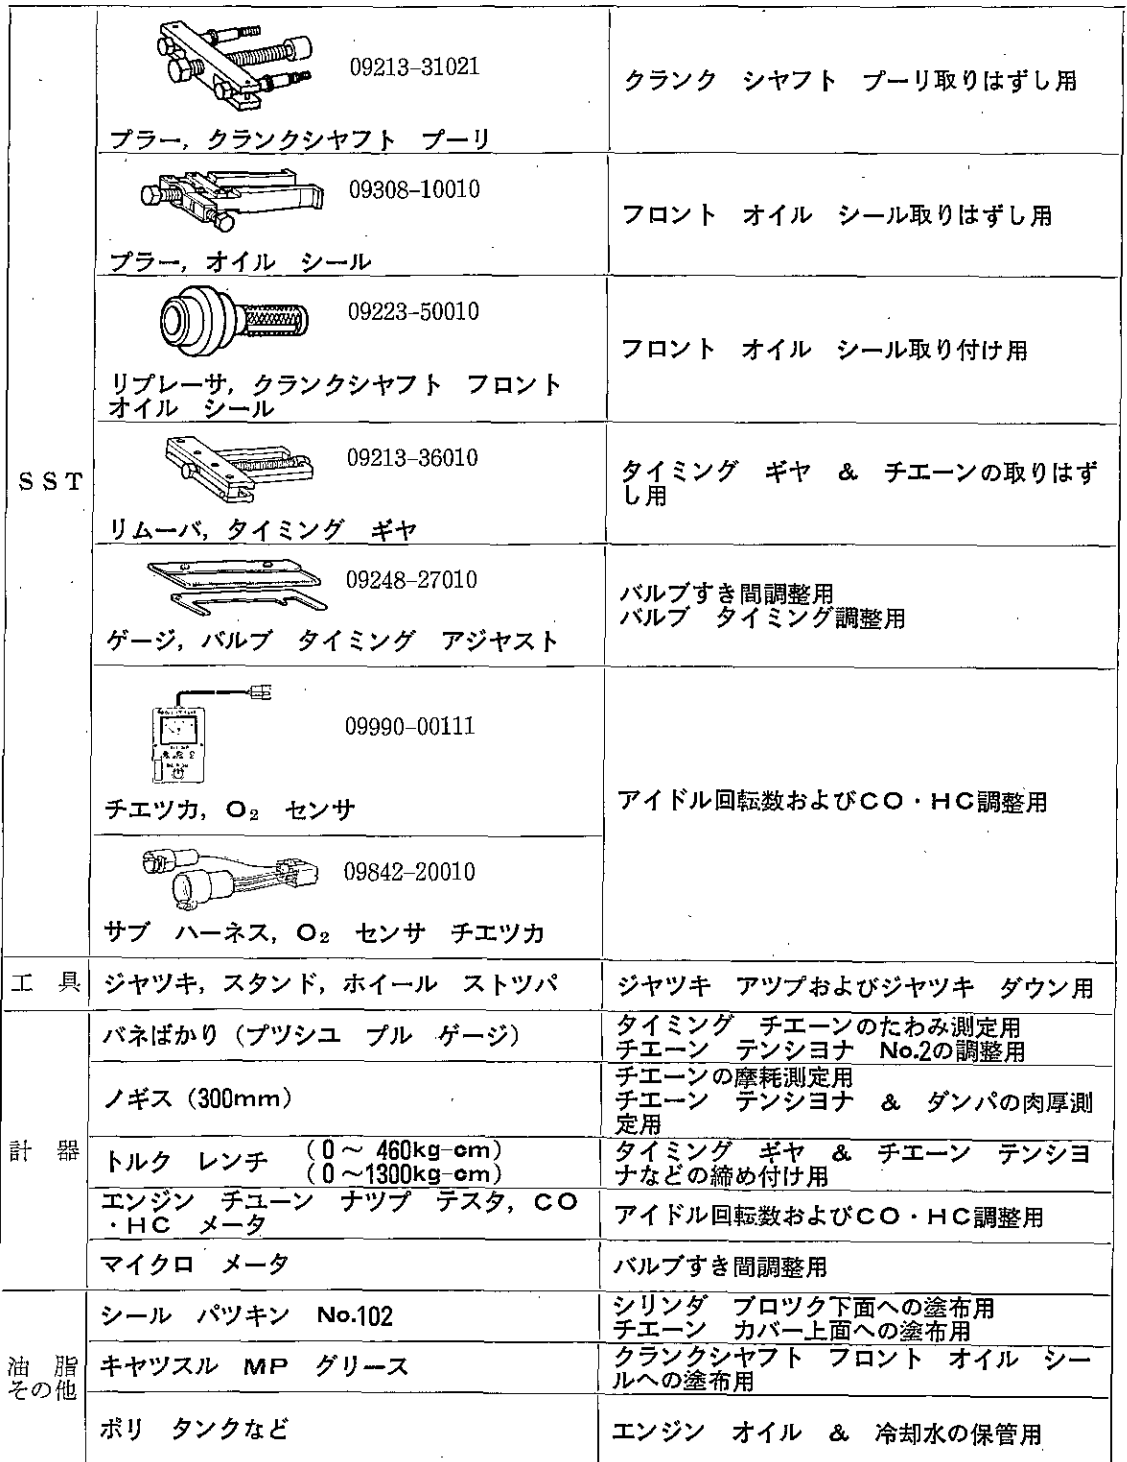 SST
09213-31021
プラー, クランクシヤフト プーリ
クランク シヤフト プーリ取りはずし用
09308-10010
プラー, オイル シール
フロント オイル シール取りはずし用
09223-50010
リプレーサ, クランクシヤフト フロント
オイル シール
フロント オイル シール取り付け用
09213-36010
リムーバ, タイミング ギヤ
タイミング ギヤ & チエーンの取りはず
し用
09248-27010
ゲージ, バルブ タイミング アジヤスト
バルブすき間調整用
バルブ タイミング調整用
09990-00111
チエツカ, O₂ センサ
09842-20010
サブ ハーネス, O₂ センサ チエツカ
アイドル回転数およびCO・HC調整用
工 具
ジヤツキ, スタンド, ホイール ストツパ
ジヤツキ アツプおよびジヤツキ ダウン用
計 器
バネばかり (プツシユ プル ゲージ)
タイミング チエーンのたわみ測定用
チエーン テンシヨナ No.2の調整用
ノギス (300mm)
チエーンの摩耗測定用
チエーン テンシヨナ & ダンパの肉厚測
定用
トルク レンチ (0～ 460kg-cm)
(0～1300kg-cm)
タイミング ギヤ & チエーン テンシヨ
ナなどの締め付け用
エンジン チユーン ナツプ テスタ, CO
・HC メータ
アイドル回転数およびCO・HC調整用
マイクロ メータ
バルブすき間調整用
油 脂
その他
シール パツキン No.102
シリンダ ブロツク下面への塗布用
チエーン カバー上面への塗布用
キヤツスル MP グリース
クランクシヤフト フロント オイル シー
ルへの塗布用
ポリ タンクなど
エンジン オイル & 冷却水の保管用